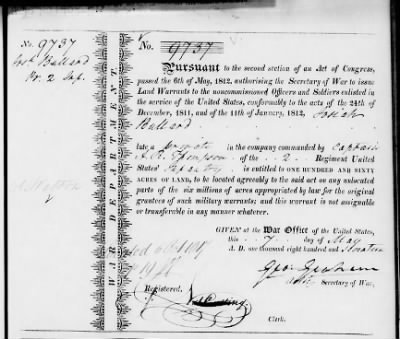 No. 9737
Ballard
2 Inf.
WAR DEPARTMENT.
No. 9737
Pursuant to the second section of an Act of Congress,
passed the 6th of May, 1812, authorising the Secretary of War to issue
Land Warrants to the noncommissioned Officers and Soldiers enlisted
in the service of the United States, conformably to the acts of the 24th
December, 1811, and of the 11th of January, 1812,
Ballard
late a private in the company commanded by Captain
A. R. Thompson of the 2 Regiment United
States Infantry is entitled to ONE HUNDRED AND SIXTY
ACRES OF LAND, to be located agreeably to the said act on any unlocated
parts of the six millions of acres appropriated by law for the original
grantees of such military warrants; and this warrant is not assignable
or transferable in any manner whatever.
GIVEN at the War Office of the United States,
this 7 day of May
A. D. one thousand eight hundred and
Geo: Graham
Secretary of War.
Registered.
Clerk.